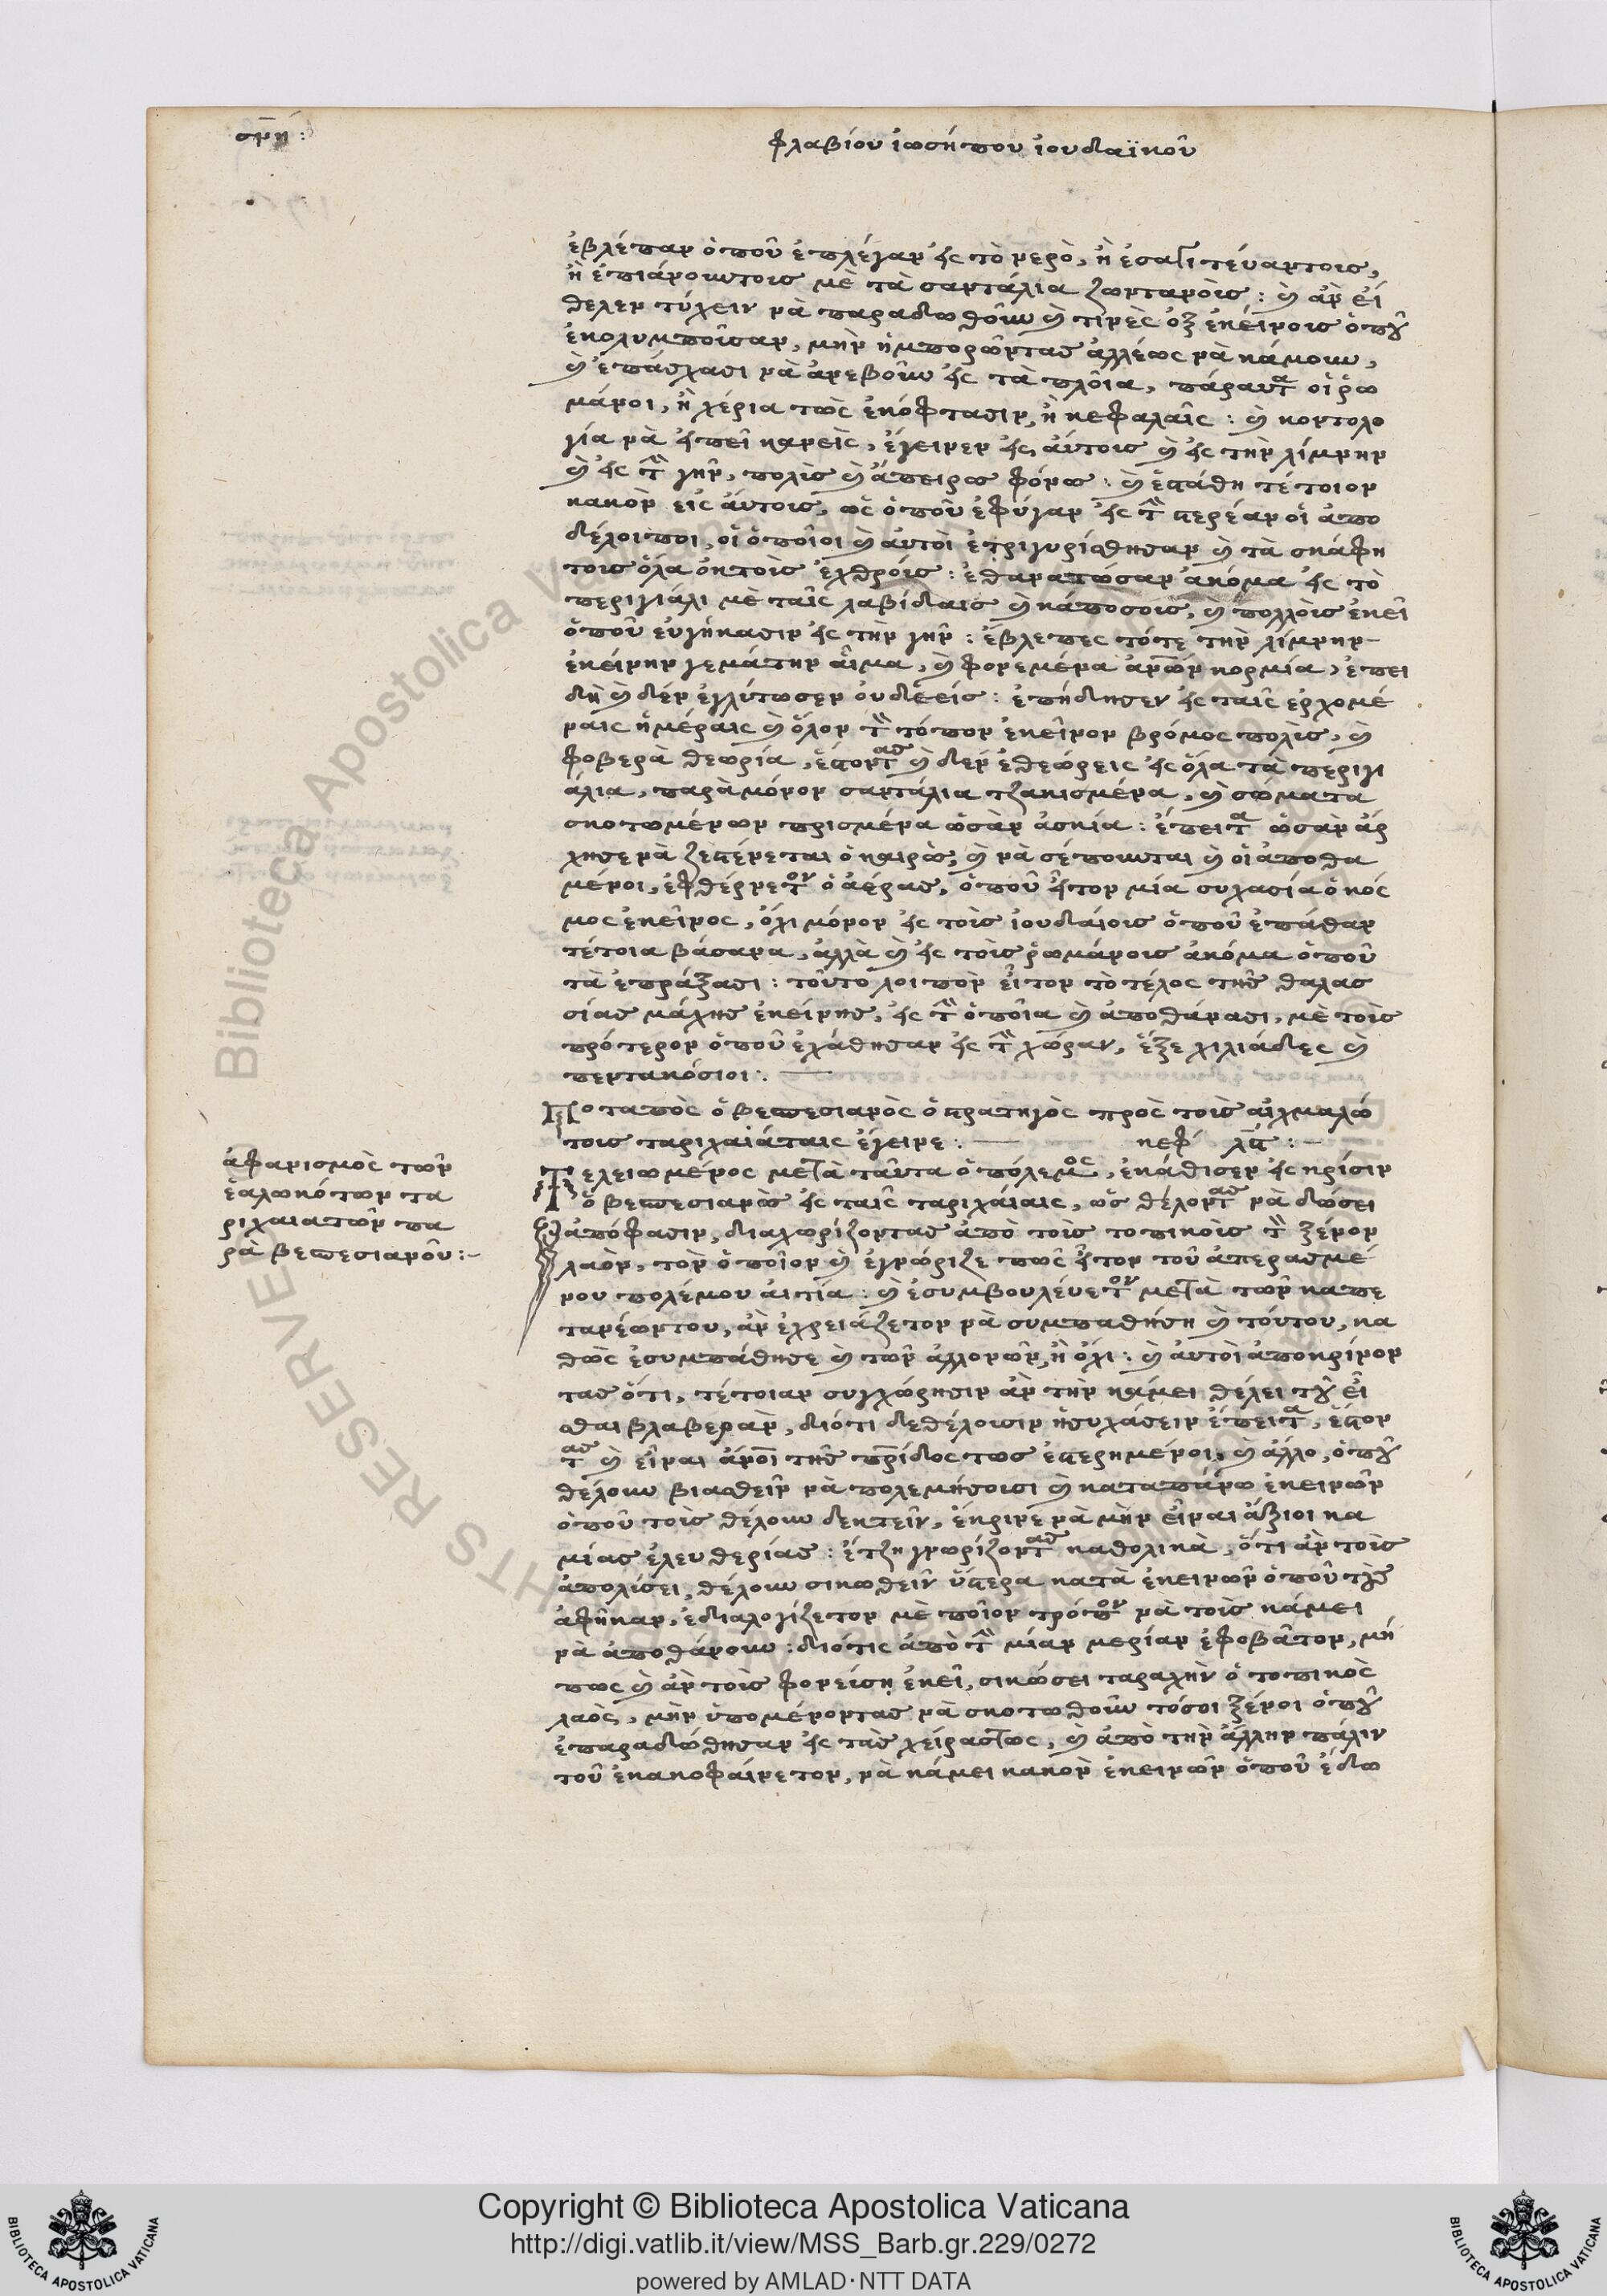 σμη:
φλαβίου ἰωσήπου ἰουδαϊκοῦ
ἐβλέπαν ὁποῦ ἐπλέγαν εἰς τὸ νερὸ, ἢ ἐσαϊτεύαντοις,
ἢ ἐπιάνουντοις μὲ τὰ σαντάλια ζωντανοὶς: καὶ ἂν εἴ
θελεν τύχειν νὰ παραδωθοῦν καὶ τινὲς ἐξ ἐκείνοις ὁποῦ
ἐκολυμποῦσαν, μὴν ἠμπορῶντας ἀλλέως νὰ κάμουν,
καὶ ἐπάσχασι νὰ ἀνεβοῦν εἰς τὰ πλοῖα, πάραυτα οἱ ῥω
μάνοι, ἢ χέρια τῶς ἐκόφτασιν, ἢ κεφαλαῖς: καὶ κοντολο
γία νὰ εἰπεῖ κανεὶς, ἔγεινεν εἰς αὐτοις καὶ εἰς τὴν λίμνην
καὶ εἰς τὴν γῆν, πολὶς καὶ ἄπειρος φόνος: καὶ ἐστάθη τέτοιον
κακὸν εἰς αὐτοις, ὡς ὁποῦ ἐφύγαν εἰς τὴν στερέαν οἱ ἀπο
δέλοιποι, οἱ ὁποῖοι καὶ αὐτοὶ ἐτριγυρίσθησαν καὶ τὰ σκάφη
τοις ὅλα ἐκ τοὶς ἐχθροίς: ἐθανατώσαν ἀκόμα εἰς τὸ
περιγιάλι μὲ ταῖς λαβίδαις καὶ κάποσοις, καὶ πολλοὶς ἐκεῖ
ὁποῦ εὐγήκασιν εἰς τὴν γῆν: ἔβλεπες τότε τὴν λίμνην
ἐκείνην γεμάτην αἷμα, καὶ φορεμένα ἀνῶν κορμία, ἐπει
δὴ καὶ δὲν ἐγλύτωσεν οὐδεείς: ἐπήδησεν εἰς ταῖς ἐρχομέ
ναις ἡμέραις καὶ ὅλον τὸν τόπον ἐκεῖνον βρόμος πολὶς, καὶ
φοβερὰ θεωρία, ἔστοντας καὶ δὲν ἐθεώρεις εἰς ὅλα τὰ περιγι
άλια, παρὰ μόνον σαντάλια τζακισμένα, καὶ σώματα
σκοτωμένων πρισμένα ὡσὰν ἀσκία: ἔπειτα ὡσὰν ἄρ
χησε νὰ ζεστένεται ὁ καιρός, καὶ νὰ σέπουνται καὶ οἱ ἀποθα
μένοι, ἐφθέρνετον ὁ ἀέρας, ὁποῦ ἦτον μία συχασία ὁ κός
μος ἐκεῖνος, ὄχι μόνον εἰς τοὶς ἰουδαίοις ὁποῦ ἐπάθαν
τέτοια βάσανα, ἀλλὰ καὶ εἰς τοὶς ῥωμάνοις ἀκόμα ὁποῦ
τὰ ἐπράξασι: τοῦτο λοιπὸν εἶτον τὸ τέλος τῆς θαλασ
σίας μάχης ἐκείνης, εἰς τὴν ὁποῖα καὶ ἀποθάνασι, μὲ τοὶς
πρότερον ὁποῦ ἐχάθησαν εἰς τὴν χώραν, ἕξε χιλιάδες καὶ
πεντακόσιοι:
Ποταπὸς ὁ βεσπεσιανὸς ὁ στρατηγὸς πρὸς τοὶς αἰχμαλώ
τοις ταριχαιάταις ἔγεινε: κεφ λστ:
ἀφανισμὸς τῶν
ἑαλωκότων τα
ριχαιατῶν πα
ρὰ βεσπεσιανοῦ:
Τελειωμένος μετὰ ταῦτα ὁ πόλεμος, ἐκάθισεν εἰς κρίσιν
ὁ βεσπεσιανὸς εἰς ταῖς ταριχαίαις, ὡς θέλοντας νὰ δώσει
ἀπόφασιν, διαχωρίζοντας ἀπὸ τοὶς τοπικοὶς τὸν ξένον
λαὸν, τὸν ὁποῖον καὶ ἐγνώριζε πῶς ἦτον τοῦ ἀπερασμέ
νου πολέμου αἰτία: καὶ ἐσυμβουλέυετον μετὰ τῶν καπε
τανέωντου, ἂν ἐχρειάζετον νὰ συμπαθήση καὶ τούτου, κα
θῶς ἐσυμπάθησε καὶ τῶν ἀλλονῶν, ἢ ὄχι: καὶ αὐτοὶ ἀποκρίνον
τας ὅτι, τέτοιαν συγχώρησιν ἂν τὴν κάμει θέλει τοῦ εἶ
σθαι βλαβερὰν, διότι δεθέλουσιν ἡσυχάσειν ἔπειτα, ἔστον
τας καὶ εἶναι ἄνοι τῆς πρίδος τως ἐστερημένοι, καὶ ἄλλο, ὁποῦ
θέλουν βιασθεῖν νὰ πολεμήσουσι καὶ καταπάνω ἐκεινῶν
ὁποῦ τοὶς θέλουν δεκτεῖν, ἔκρινε νὰ μὴν εἶναι ἄξιοι κα
μίας ἐλευθερίας: ἔτζη γνωρίζοντας καθολικὰ, ὅτι ἂν τοὶς
ἀπολύσει, θέλουν σικωθεῖν ὕστερα κατὰ ἐκεινῶν ὁποῦ τοὺς
ἀφῆκαν, ἐδιαλογίζετον μὲ ποῖον τρόπον νὰ τοὶς κάμει
νὰ ἀποθάνουν: διότις ἀπὸ τὴν μίαν μερίαν ἐφοβᾶτον, μή
πως καὶ ἂν τοὶς φονεύση ἐκεῖ, σικώσει ταραχὴν ὁ τοπικὸς
λαὸς, μὴν ὑπομένοντας νὰ σκοτωθοῦν τόσοι ξένοι ὁποῦ
ἐπαραδώθησαν εἰς τὰς χείραςτως, καὶ ἀπὸ τὴν ἄλλην πάλιν
τοῦ ἐκακοφαίνετον, νὰ κάμει κακὸν ἐκεινῶν ὁποῦ ἔδω
Copyright © Biblioteca Apostolica Vaticana
http://digi.vatlib.it/view/MSS_Barb.gr.229/0272
powered by AMLAD·NTT DATA